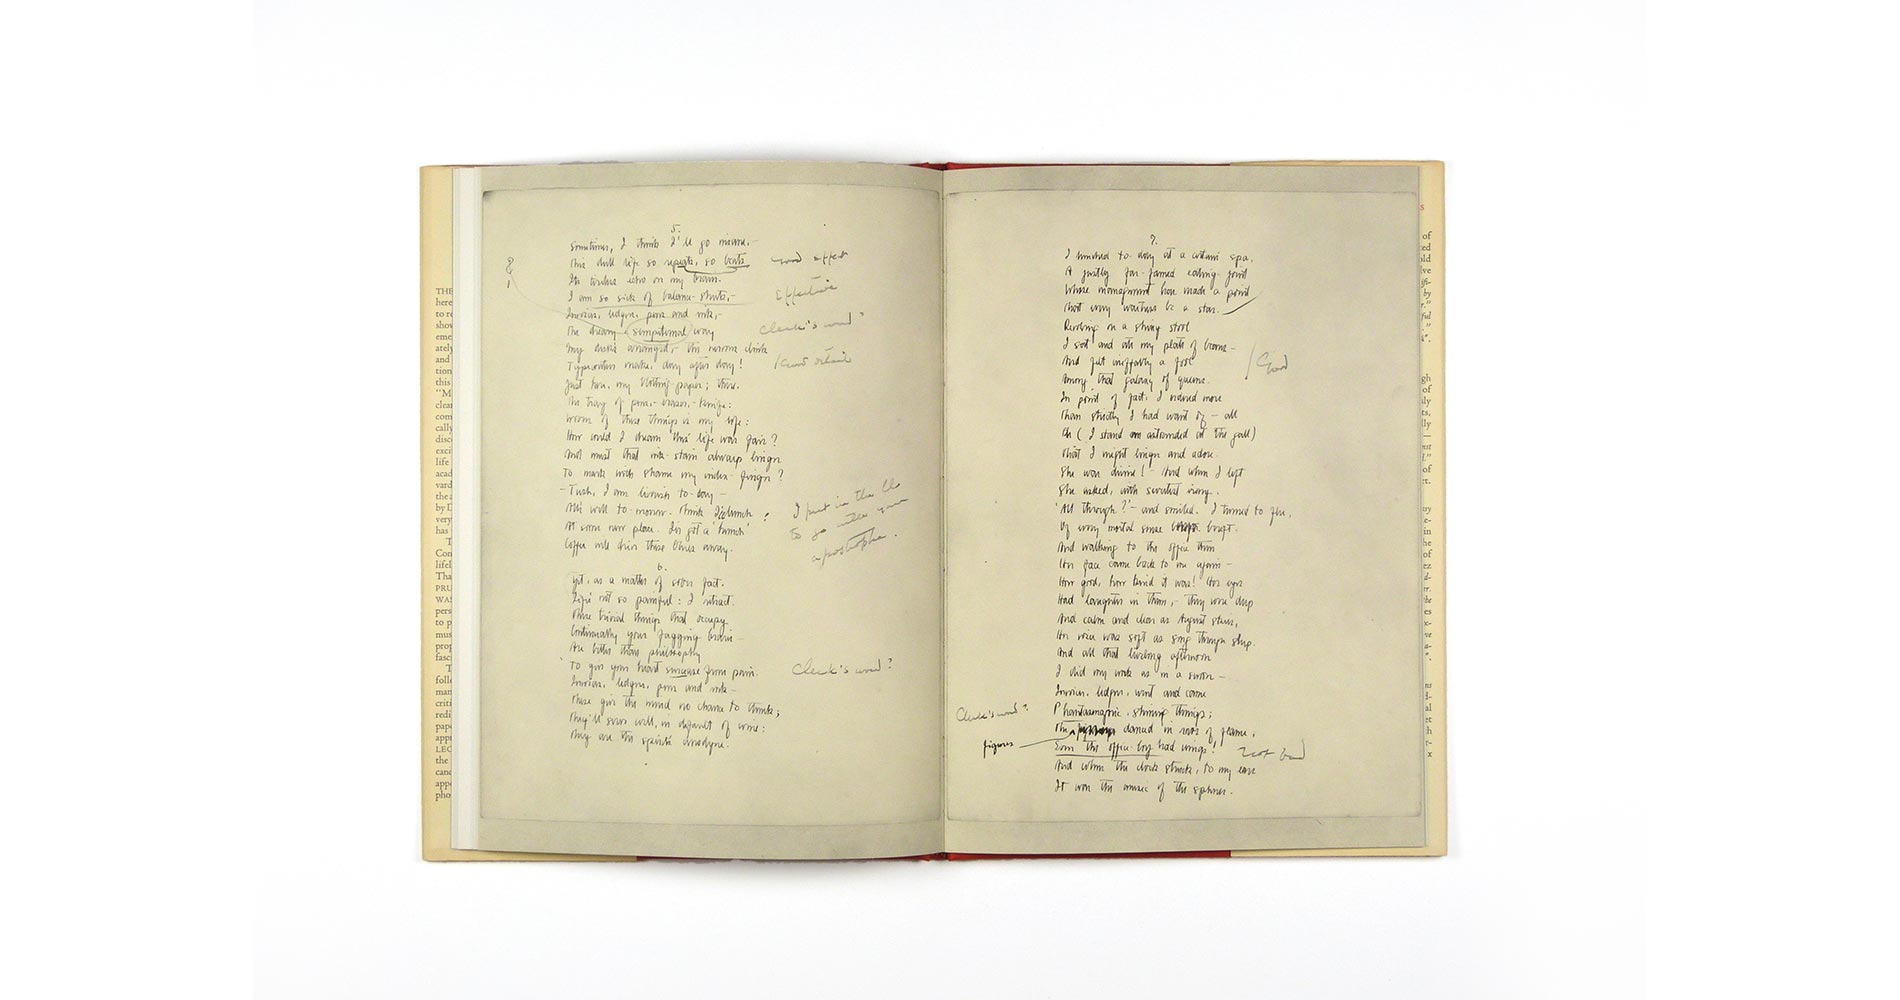 5.
Sometimes, I think I'll go insane,—
This dull life so repeats, so beats
good effect
Its tireless echo on my brain.
I am so sick of balance-sheets,—
effective
Invoices, ledgers, pens and ink,—
The dreary sempiternal way
Clerk's word?
My desk's arranged,— the narrow clink
Typewriters make, day after day!
Good detail
Just here, my blotting-paper; there,
The tray of pens,—eraser,—knife:
of these things is my life:
How could I dream this life was fair?
And must that ink-stain always linger
To mark with shame my index-finger?
—Tush, I am liverish to-day—
All's well to-morrow. Think I'll lunch
At some new place. I've got a 'hunch'
Coffee will drive these blues away.
I put in the ll
to go with your
apostrophe.
6.
Yet, as a matter of sober fact,
Life's not so painful: I retract.
These trivial things that occupy
Continually your fagging brain—
Are better than philosophy
To give your heart surcease from pain.
Clerk's word?
Invoices, ledgers, pens and ink—
These give the mind no chance to think;
They'll serve well, in default of wine:
They are the spirit's anodyne.
7.
I lunched to-day at a certain spa,
A justly far-famed eating-joint
Whose management have made a point
That every waitress be a star.
Perching on a shiny stool
I sat and ate my plate of beans—
And felt ineffably a fool
Good
Among that galaxy of queens.
In point of fact, I ordered more
Than strictly I had want of—all
Oh (I stand astounded at the gall)
That I might linger and adore.
She was divine!—And when I left
She asked, with sweetest irony,
'All through?'—and smiled. I turned to flee,
Of every mortal sense bereft.
And walking to the office then
Her face came back to me again—
How good, how kind it was! Her eyes
Had laughter in them,—they were deep
And calm and clear as August skies,
Her voice was soft as song through sleep.
And all that livelong afternoon
I did my work as in a swoon—
Invoices, ledgers, went and came
Phantasmagoric, shining things;
Clerk's word?
The figures danced in rows of flame,
Even the office-boy had wings!
not bad
And when the clock struck, to my ears
It was the music of the spheres.